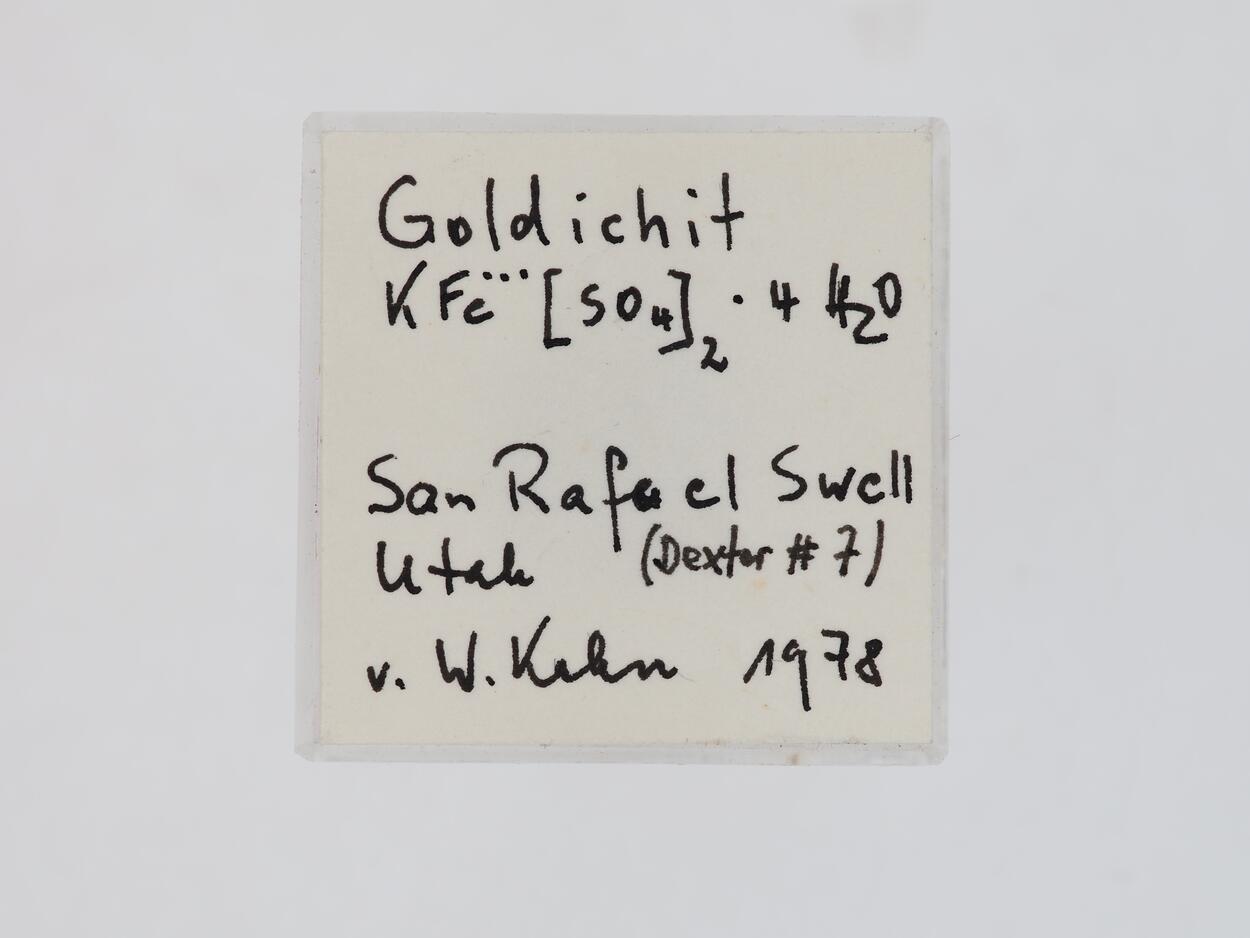 Goldichit
KFe··· [SO₄]₂ · 4 H₂O
San Rafael Swell
Utah (Dexter # 7)
v. W. Kahn 1978